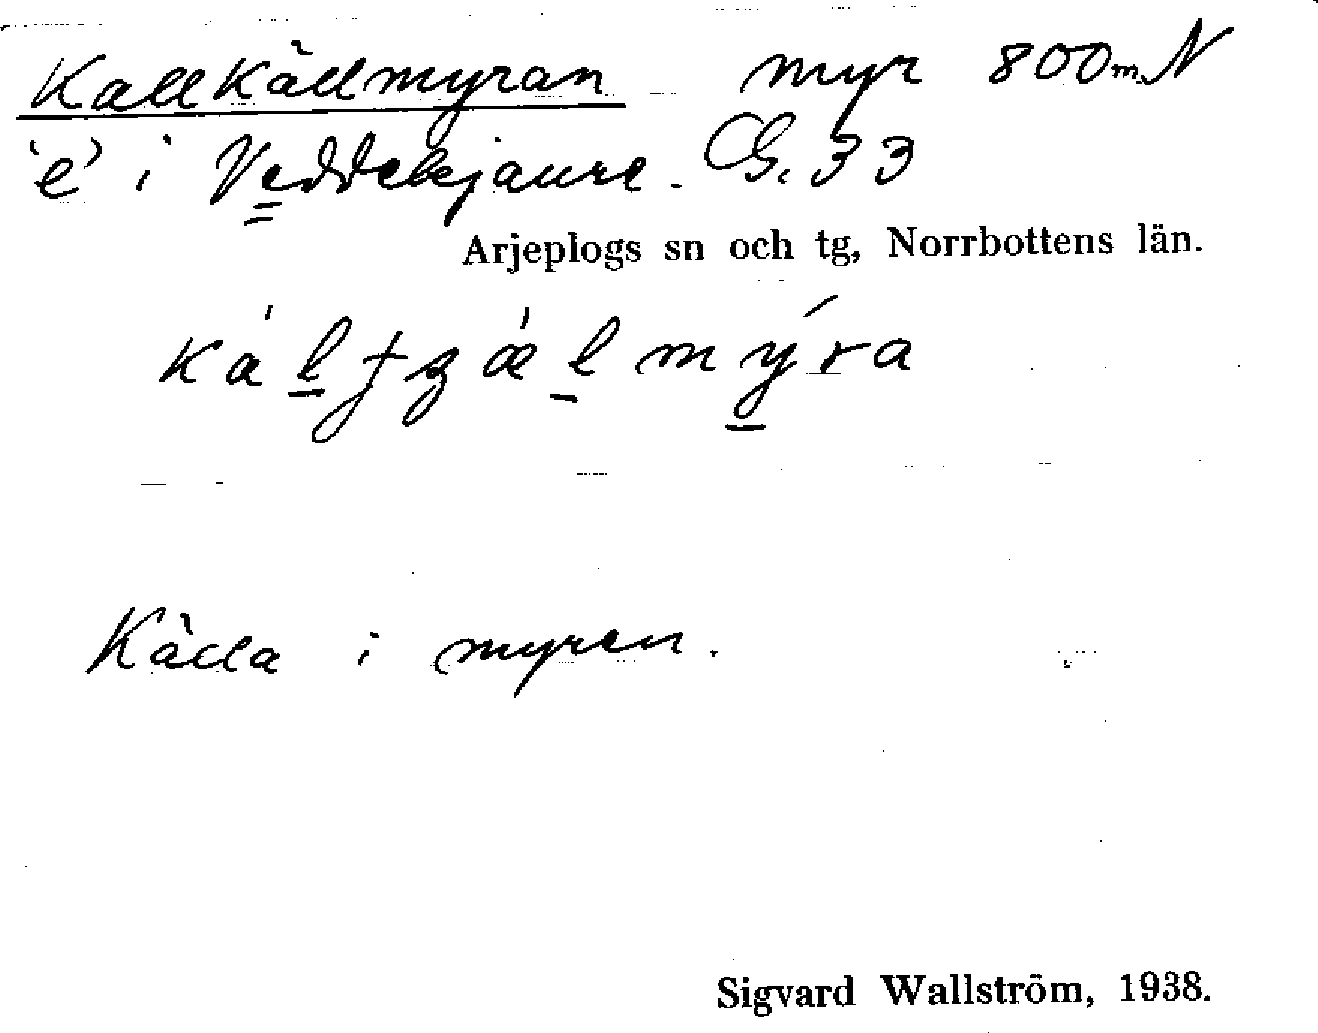 Kallkällmyran myr 800 m N
'e' i Veddekjaure. G. 33
Arjeplogs sn och tg, Norrbottens län.
Källa i myren.
Sigvard Wallström, 1938.